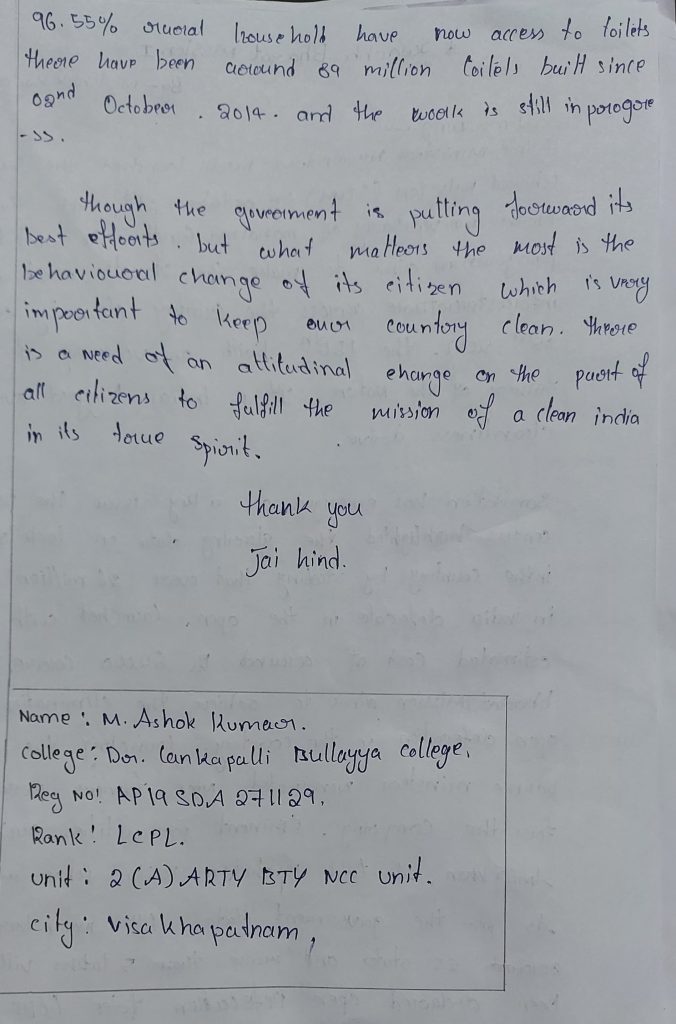 96.55% rural household have now access to toilets
there have been around 89 million toilets built since
02nd October. 2014. and the work is still in progre
-ss.
though the goverment is putting forward its
best efforts. but what matters the most is the
behavioural change of its citizen which is very
important to keep our country clean. there
is a need of an attitudinal change on the part of
all citizens to fulfill the mission of a clean india
in its true spirit.
thank you
Jai hind.
Name: M. Ashok Kumar.
college: Dr. Lankapalli Bullayya college.
Reg No: AP19SDA271129.
Rank: LCPL.
unit: 2 (A) ARTY BTY NCC unit.
city: Visakhapatnam,